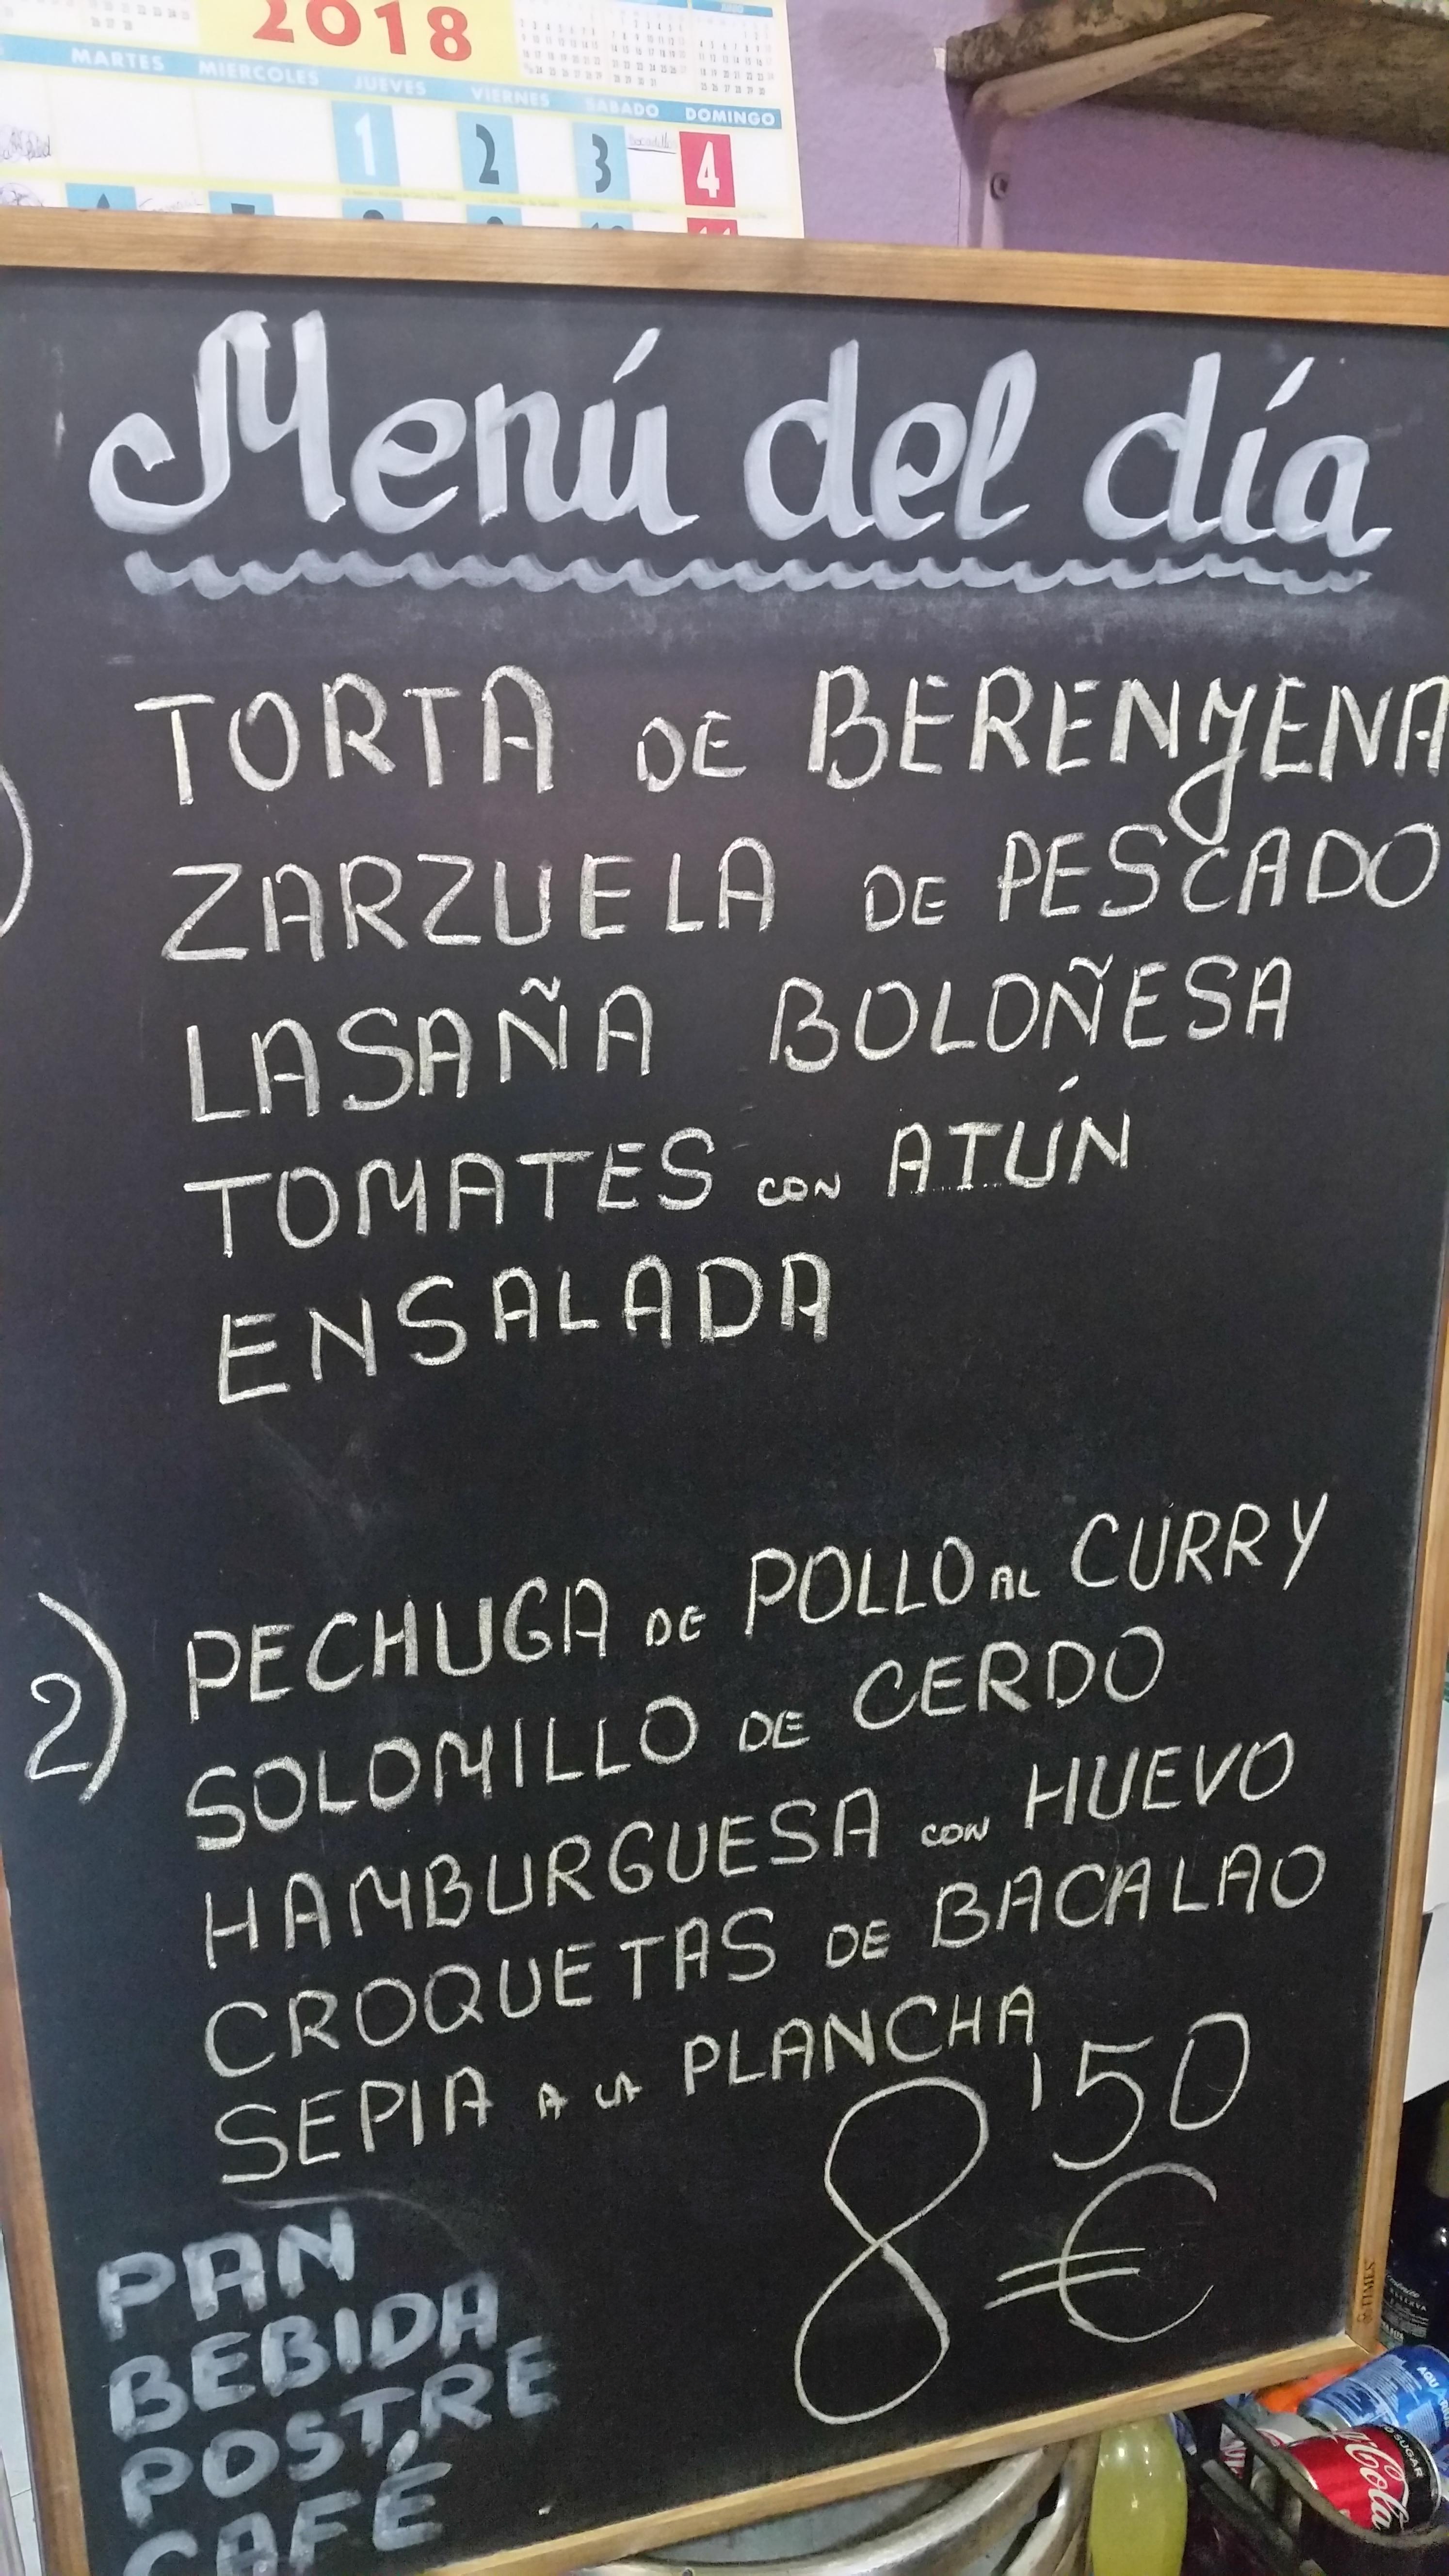 2018
MARTES MIERCOLES JUEVES VIERNES SABADO DOMINGO
1 2 3 4
Menú del día
)
TORTA DE BERENJENA
ZARZUELA DE PESCADO
LASAÑA BOLOÑESA
TOMATES CON ATÚN
ENSALADA
2) PECHUGA DE POLLO AL CURRY
SOLOMILLO DE CERDO
HAMBURGUESA CON HUEVO
CROQUETAS DE BACALAO
SEPIA A LA PLANCHA
8'50
€
PAN
BEBIDA
POSTRE
CAFÉ
TIMES